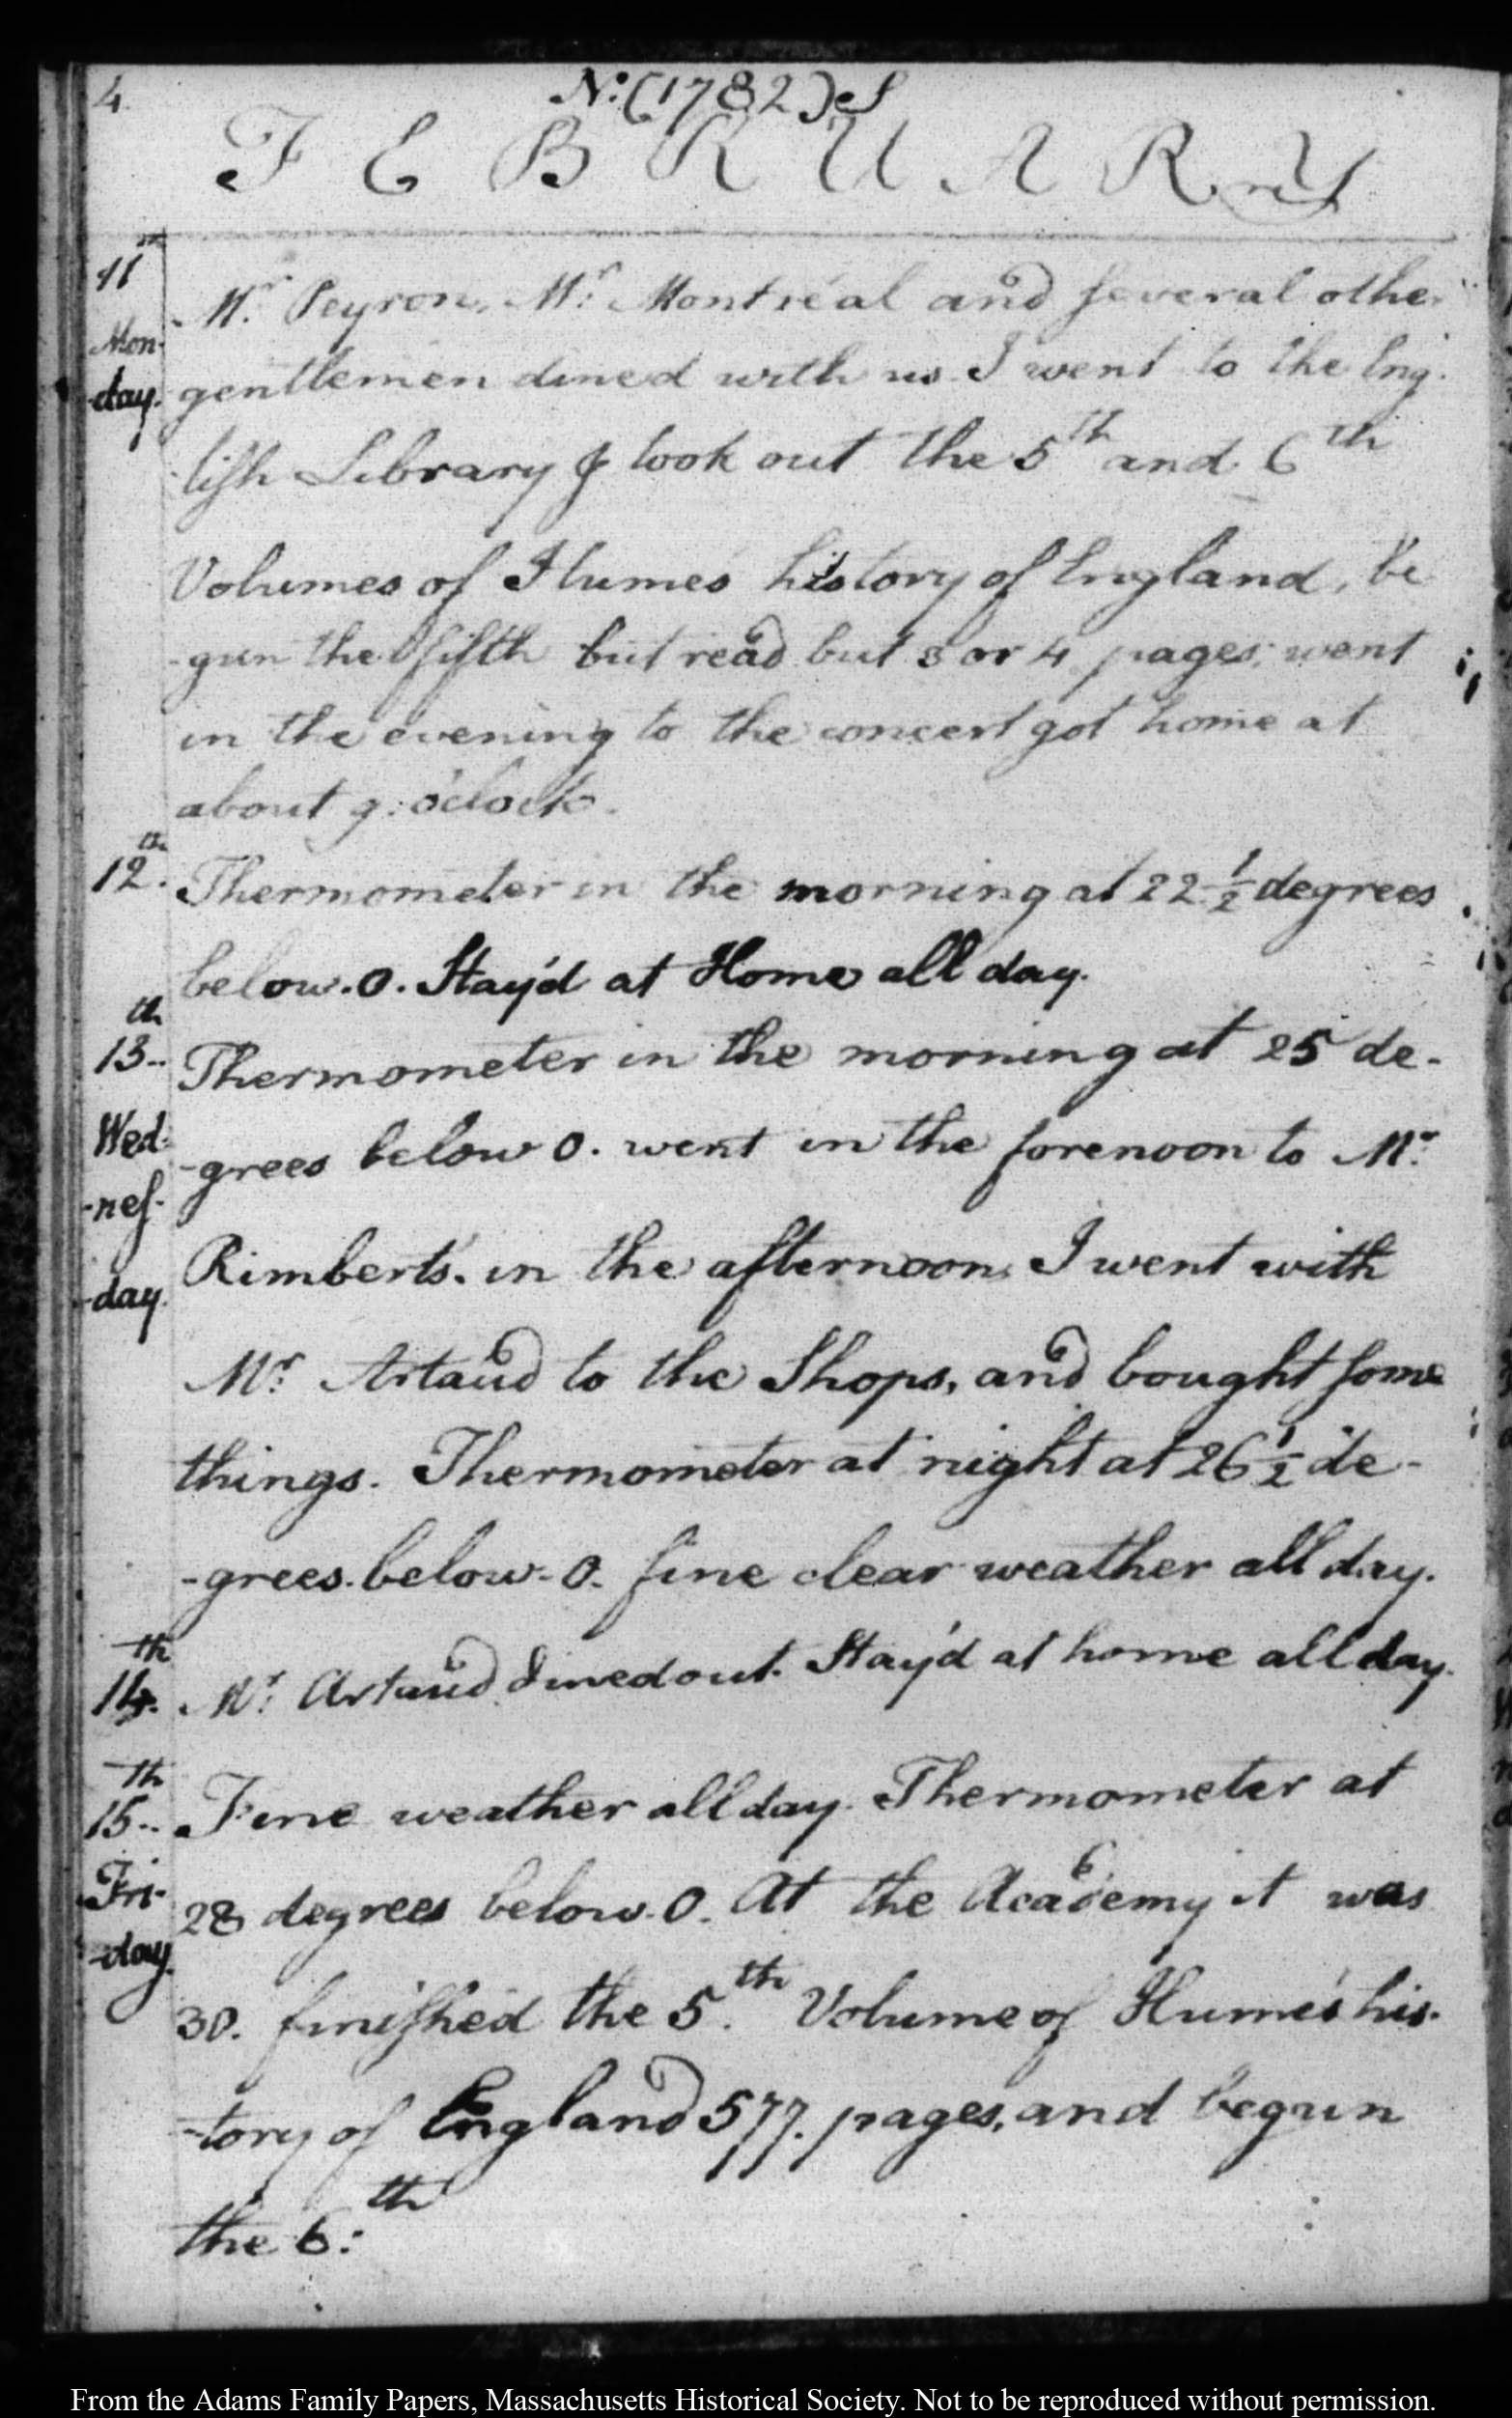 4
N:o (1782) S
FEBRUARY
11th
Monday.
Mr. Peyron, Mr: Montréal and several other
gentlemen dined with us I went to the Eng-
lish Library & took out the 5th and 6th
Volumes of Hume's history of England, be
-gun the fifth but read but 3 or 4 pages; went
in the evening to the concert got home at
about 9: o'clock.
12th. Thermometer in the morning at 22 1/2 degrees
below. 0. Stay'd at Home all day.
13th.. Thermometer in the morning at 25 de-
Wed-
-nes-
-day.
-grees below 0. went in the forenoon to Mr:
Rimbert's. in the afternoon I went with
Mr: Artaud to the Shops, and bought some
things. Thermometer at night at 26 1/2 de-
-grees. below. 0. fine clear weather all day.
14th. Mr: Artaud dined out. Stay'd at home all day.
15th.. Fine weather all day. Thermometer at
Fri-
-day.
28 degrees below. 0. At the Academy it was
30. finished the 5.th Volume of Hume's his-
-tory of England 577. pages, and begun
the 6:th
From the Adams Family Papers, Massachusetts Historical Society. Not to be reproduced without permission.